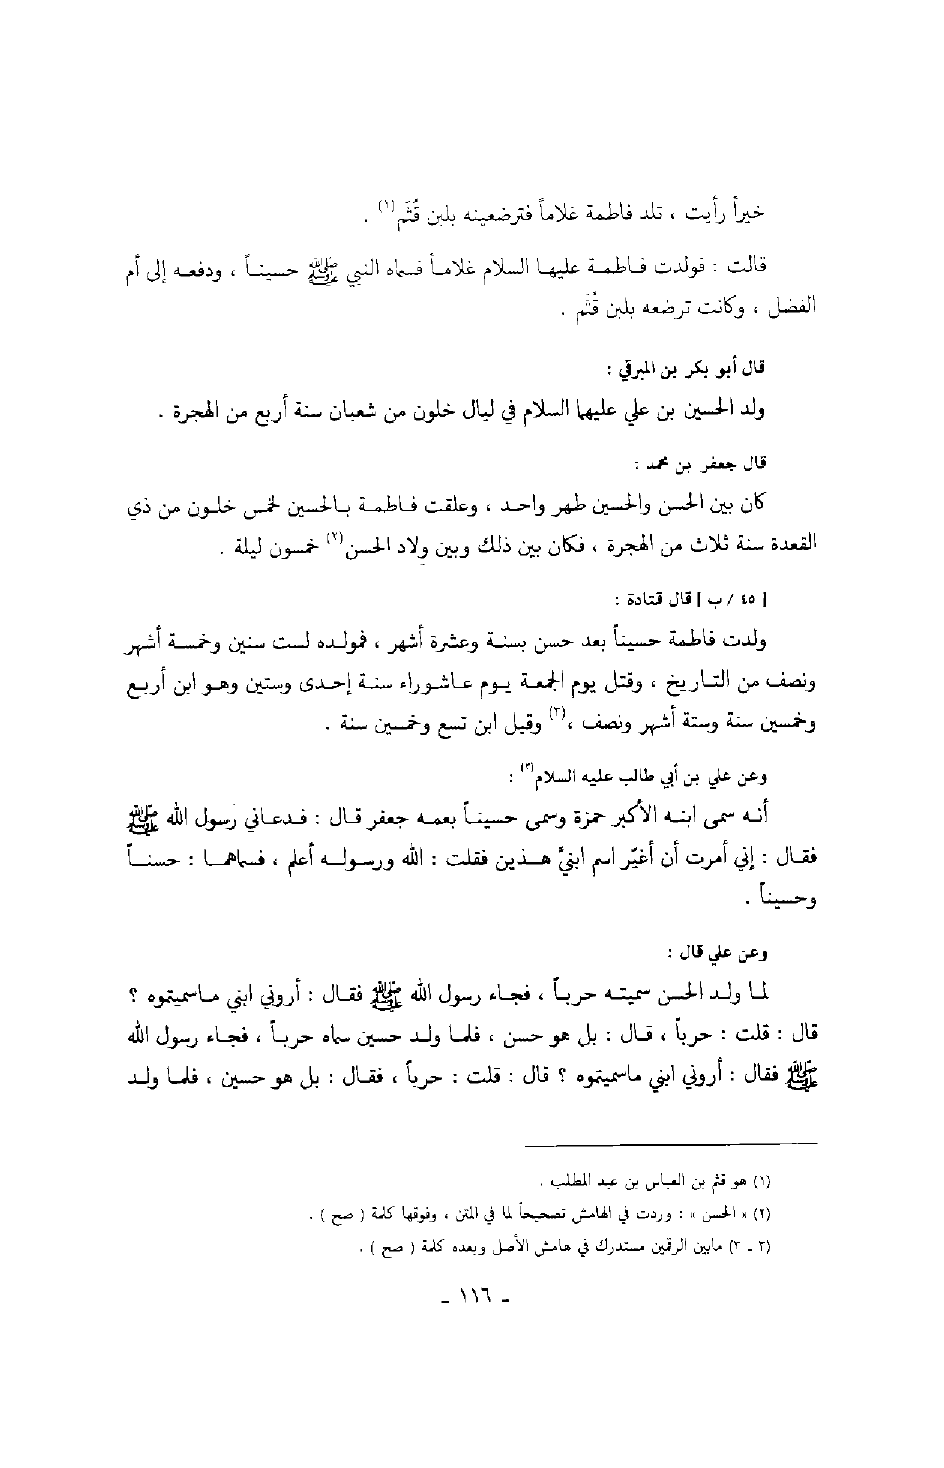 خيراً رأيت ، تلد فاطمة غلاماً فترضعينه بلبن قُثَم(١) .
قالت : فولدت فاطمة عليها السلام غلاماً فسماه النبي ﷺ حسيناً ، ودفعه إلى أم
الفضل ، وكانت ترضعه بلبن قُثَم .
قال أبو بكر بن البرقي :
ولد الحسين بن علي عليهما السلام في ليال خلون من شعبان سنة أربع من الهجرة .
قال جعفر بن محمد :
كان بين الحسن والحسين طهر واحد ، وعلقت فاطمة بالحسين لخمس خلون من ذي
القعدة سنة ثلاث من الهجرة ، فكان بين ذلك وبين ولاد الحسن(٢) خمسون ليلة .
[ ٤٥ / ب ] قال قتادة :
ولدت فاطمة حسيناً بعد حسن بسنة وعشرة أشهر ، فمولده لست سنين وخمسة أشهر
ونصف من التاريخ ، وقتل يوم الجمعة يوم عاشوراء سنة إحدى وستين وهو ابن أربع
وخمسين سنة وستة أشهر ونصف ،(٣) وقيل ابن تسع وخمسين سنة .
وعن علي بن أبي طالب عليه السلام(٣) :
أنه سمى ابنه الأكبر حمزة وسمى حسيناً بعمه جعفر قال : فدعاني رسول الله ﷺ
فقال : إني أمرت أن أغيّر اسم ابنيَّ هذين فقلت : الله ورسوله أعلم ، فسماهما : حسناً
وحسيناً .
وعن علي قال :
لما ولد الحسن سميته حرباً ، فجاء رسول الله ﷺ فقال : أروني ابني ماسميتموه ؟
قال : قلت : حرباً ، قال : بل هو حسن ، فلما ولد حسين سماه حرباً ، فجاء رسول الله
ﷺ فقال : أروني ابني ماسميتموه ؟ قال : قلت : حرباً ، فقال : بل هو حسين ، فلما ولد
(١) هو قثم بن العباس بن عبد المطلب .
(٢) « الحسن » : وردت في الهامش تصحيحاً لما في المتن ، وفوقها كلمة ( صح ) .
(٣ ـ ٣) مابين الرقمين مستدرك في هامش الأصل وبعده كلمة ( صح ) .
ـ ١١٦ ـ